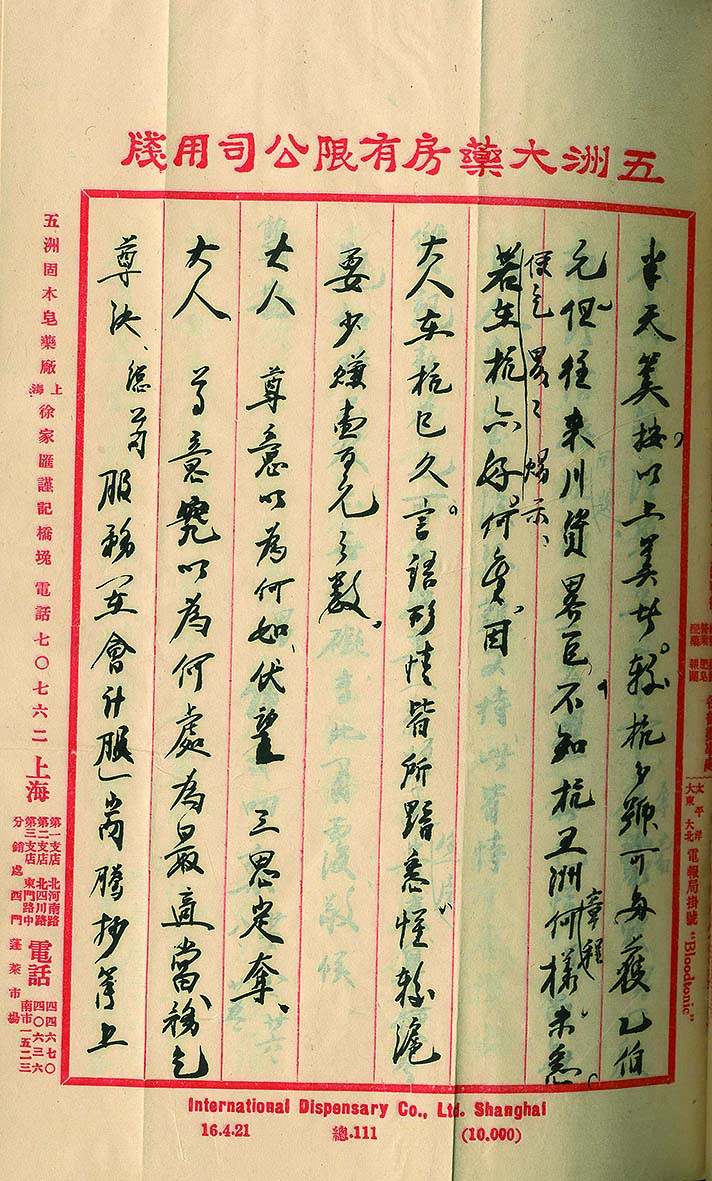 五洲大藥房有限公司用牋
半天算。按以上算法。較杭少號可每蓰乙伯
元。但往來川資畧巨。不知杭五洲何樣章程。未悉。
便乞畧之賜示、
若在杭亦好。何貴、因
大人在杭已久。言語形情皆所諳悉。惟較滬
要少賺壹百元之數、
大人尊意以為何如、伏望三思定奪、
大人、尊意究以為何處為最適當、務乞
尊決、憑前服務（在會計服）尚騰抄等上
五洲固本皂藥廠 上海 徐家匯謹記橋堍 電話七〇七六二
上海
第一支店 北河南路
第二支店 北四川路
第三支店 東門路中
分銷處 西門蓬萊市場
電話
四四六七〇
四〇六三六
南市一五二三
太平洋
大東 大北
電報局掛號 "Bloodtonic"
International Dispensary Co., Ltd. Shanghai
16.4.21 總.111 (10.000)